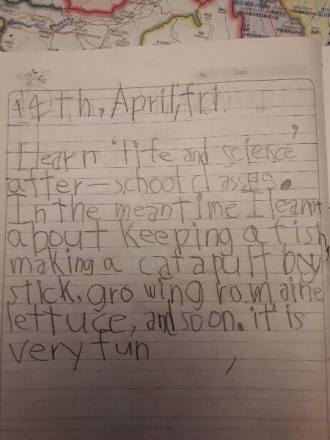 14th, April, fri.
I learn 'life and science'
after-school classes.
In the meantime I learnt
about keeping a fish,
making a catapult by
stick, growing romaine
lettuce, and so on. it is
very fun